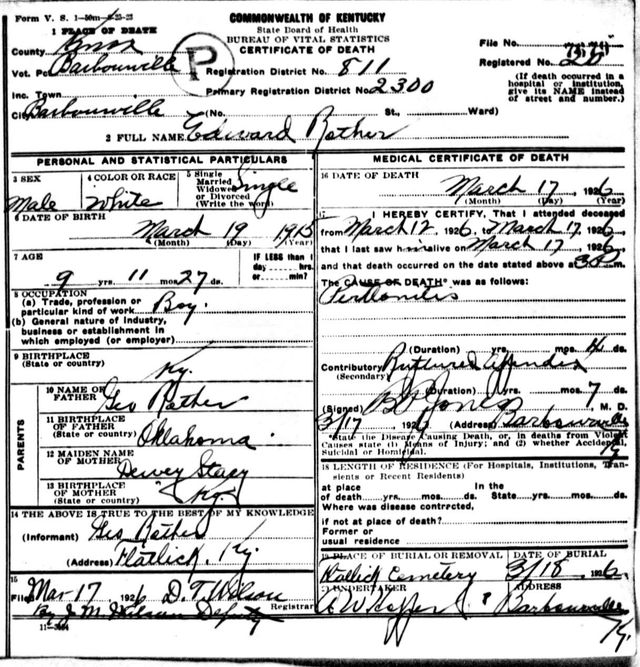 Form V. S. 1-50m-4-23-23
COMMONWEALTH OF KENTUCKY
1 PLACE OF DEATH
State Board of Health
BUREAU OF VITAL STATISTICS
CERTIFICATE OF DEATH
County Knox
File No.
Vot. Pct Barbourville
P
Registration District No. 811
Registered No. 20
Inc. Town
Primary Registration District No. 2300
(If death occurred in a hospital or institution, give its NAME instead of street and number.)
City Barbourville (No. St., Ward)
2 FULL NAME Edward Rather
PERSONAL AND STATISTICAL PARTICULARS
3 SEX
Male
4 COLOR OR RACE
White
5 Single
Married
Widowed
or Divorced
(Write the word)
Single
6 DATE OF BIRTH
March 19 1915
(Month) (Day) (Year)
7 AGE
9 yrs. 11 mos. 27 ds.
IF LESS than 1
day hrs.
or min?
8 OCCUPATION
(a) Trade, profession or
particular kind of work Boy.
(b) General nature of industry,
business or establishment in
which employed (or employer)
9 BIRTHPLACE
(State or country) Ky.
PARENTS
10 NAME OF
FATHER Geo Rather
11 BIRTHPLACE
OF FATHER
(State or country) Oklahoma.
12 MAIDEN NAME
OF MOTHER Dewey Stacy
13 BIRTHPLACE
OF MOTHER
(State or country) Ky.
14 THE ABOVE IS TRUE TO THE BEST OF MY KNOWLEDGE
(Informant) Geo Rather
(Address) Flatlick, Ky.
15
Filed Mar 17, 1926 D. T. Wilson
Registrar
By J. M. Wilson Deputy
MEDICAL CERTIFICATE OF DEATH
16 DATE OF DEATH
March 17, 1926
(Month) (Day) (Year)
17 I HEREBY CERTIFY, That I attended deceased
from March 12, 1926, to March 17, 1926
that I last saw him alive on March 17, 1926
and that death occurred on the date stated above at 3 P m
The CAUSE OF DEATH* was as follows:
Peritonitis
(Duration) yrs. mos. 4 ds.
Contributory Ruptured Appendix
(Secondary)
(Duration) yrs. mos. 7 ds.
(Signed) Jones M. D.
3/17 1926 (Address) Barbourville
Ky
*State the Disease Causing Death, or, in deaths from Violent
Causes state (1) Means of Injury; and (2) whether Accidental,
Suicidal or Homicidal.
18 LENGTH OF RESIDENCE (For Hospitals, Institutions, Transients or Recent Residents)
at place
of death yrs. mos. ds.
In the
State yrs. mos. ds.
Where was disease contracted,
if not at place of death?
Former or
usual residence
19 PLACE OF BURIAL OR REMOVAL
DATE OF BURIAL
Cemetery 3/18, 1926
20 UNDERTAKER
ADDRESS
Barbourville
Ky.